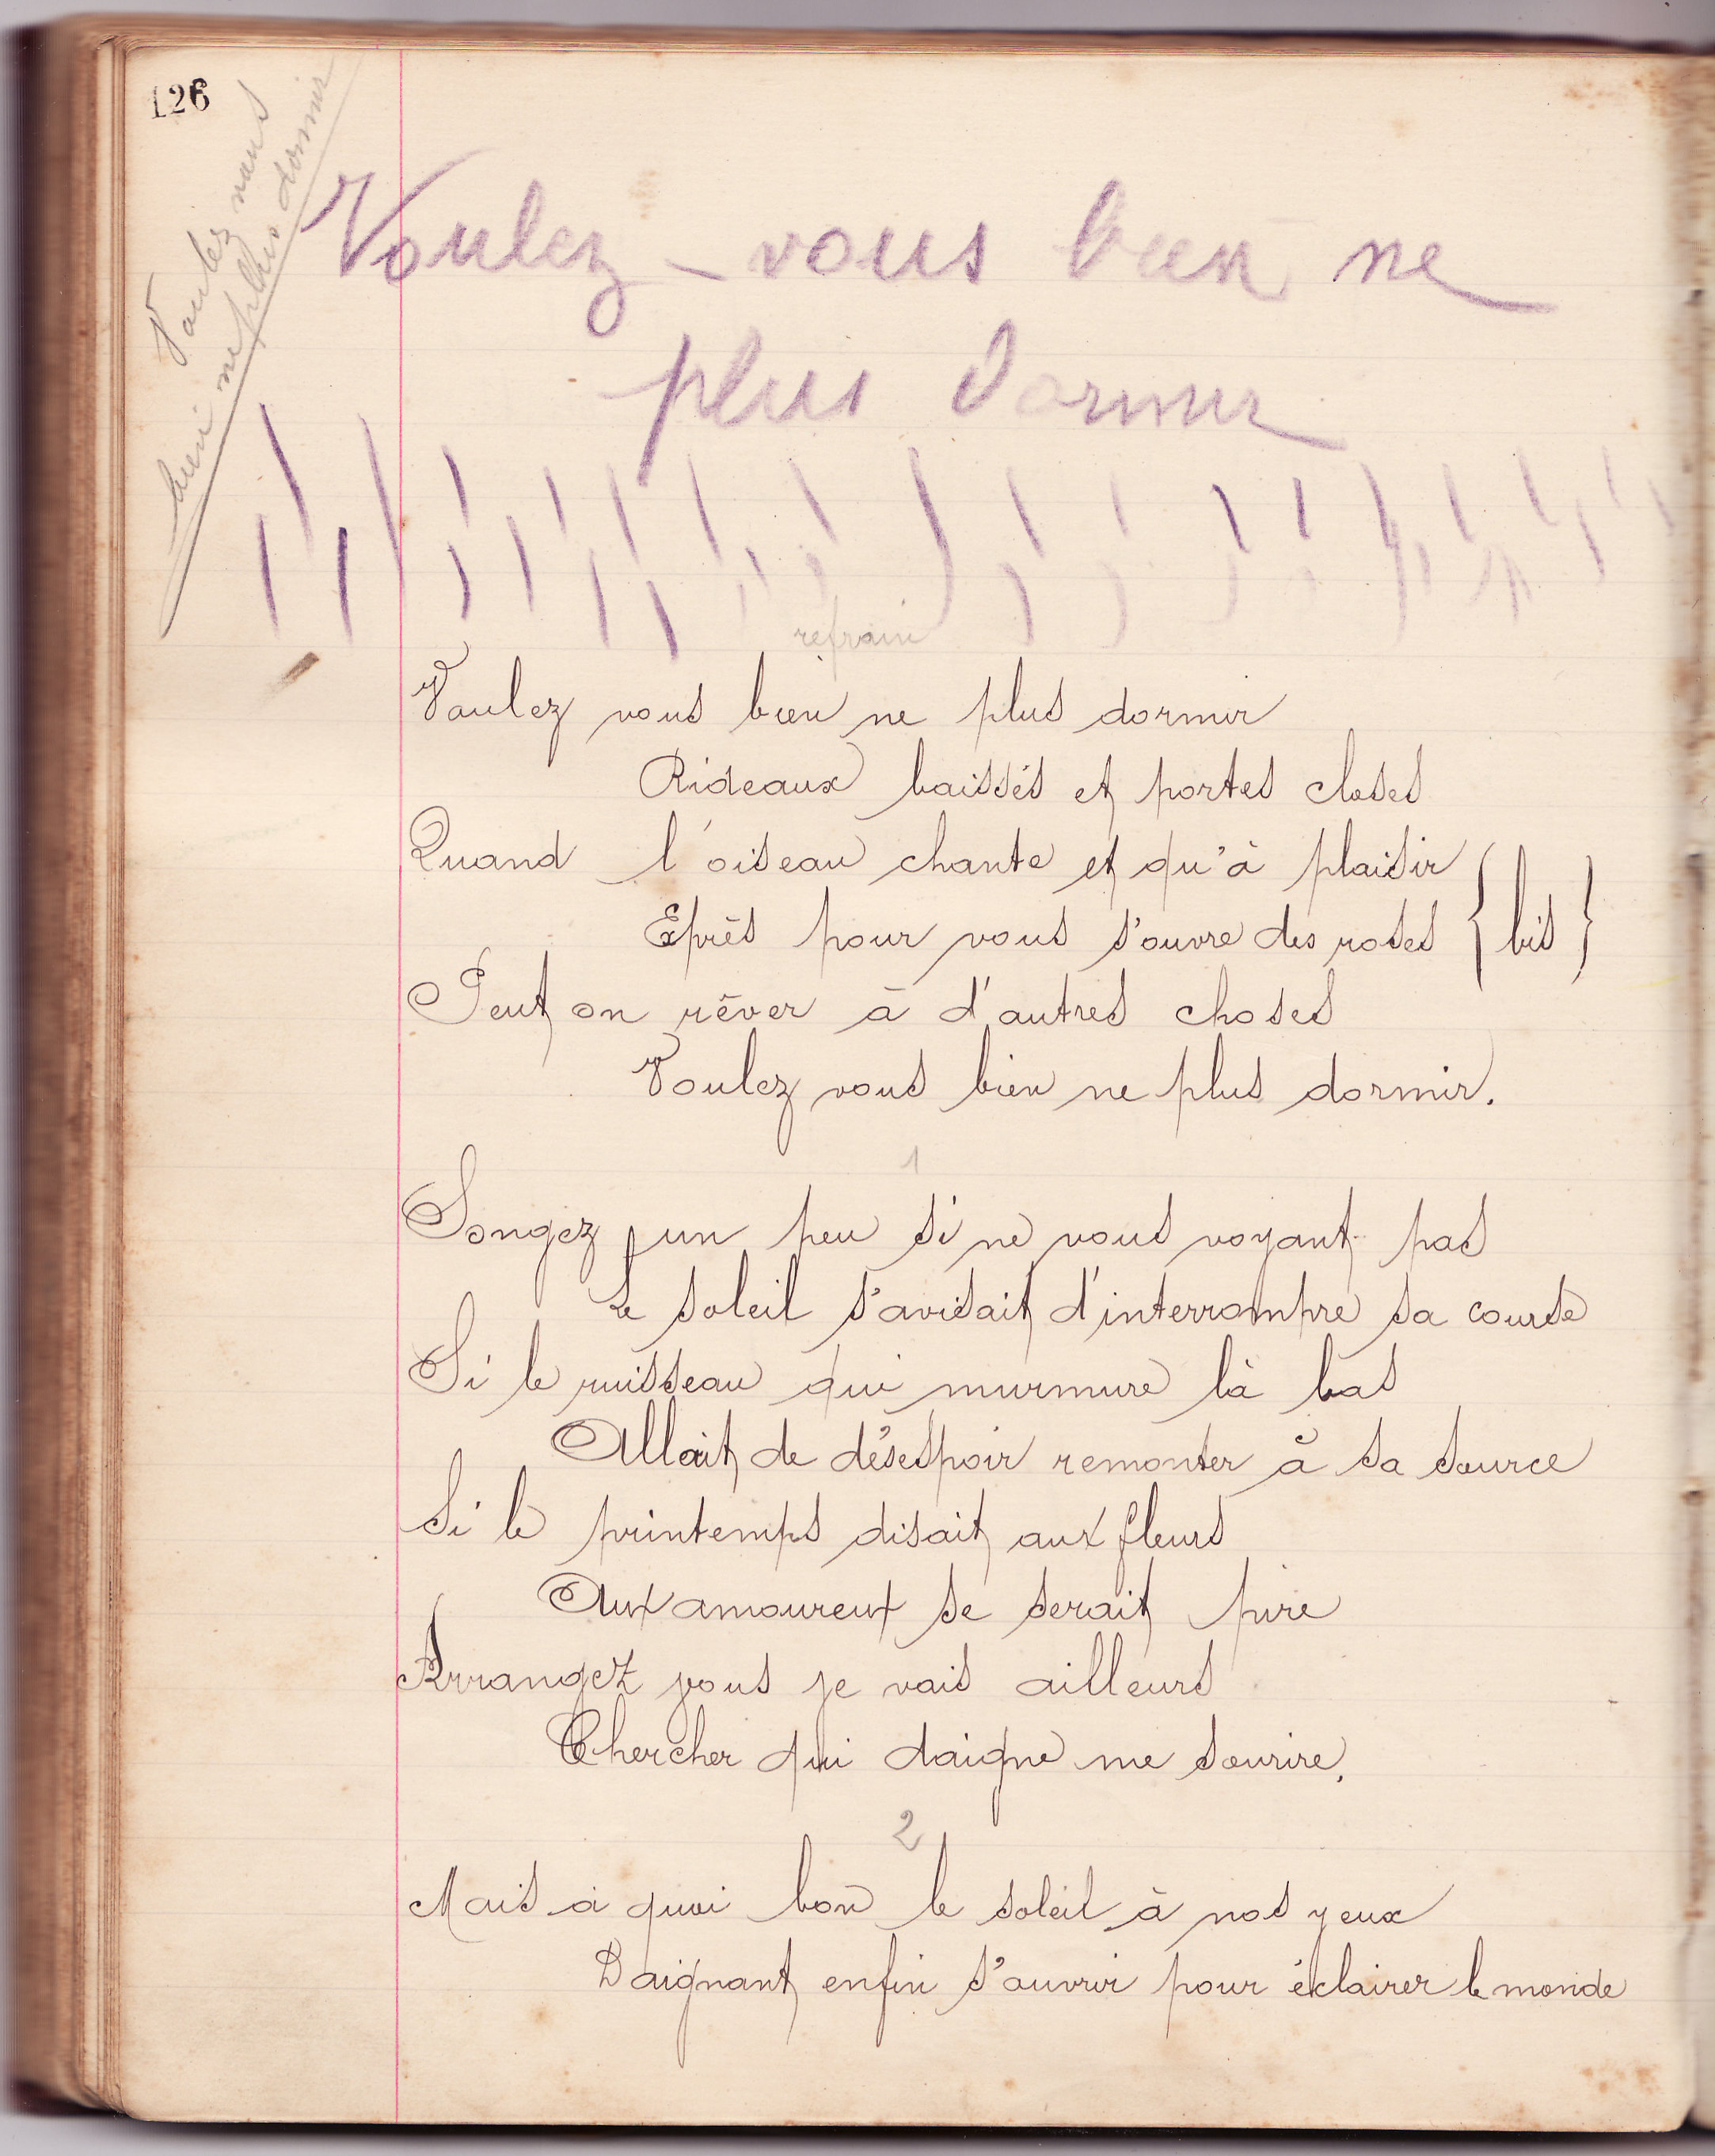 126
Voulez vous
bien ne plus dormir
Voulez-vous bien ne
plus dormir
refrain
Voulez vous bien ne plus dormir
Rideaux baissés et portes closes
Quand l'oiseau chante et qu'à plaisir
Exprès pour vous s'ouvre des roses { bis }
Peut on rêver à d'autres choses
Voulez vous bien ne plus dormir.
1
Songez un peu si ne vous voyant pas
Le soleil s'avisait d'interrompre sa course
Si le ruisseau qui murmure là bas
Allait de désespoir remonter à sa source
Si le printemps disait aux fleurs
Aux amoureux se serait pire
Arrangez vous je vais ailleurs
Chercher qui daigne me sourire.
2
Mais à quoi bon le soleil à nos yeux
Daignant enfin s'ouvrir pour éclairer le monde